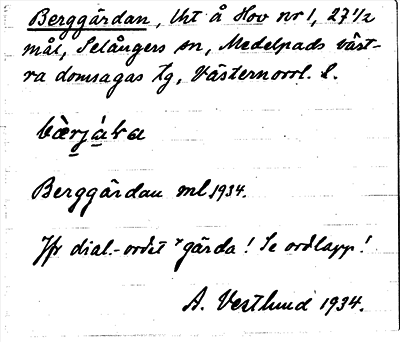 Berggärdan, lht å Hov nr 1, 27 1/2
mål, Selångers sn, Medelpads väst-
ra domsagas tg, Västernorrl. l.
Berggärdan ml 1934.
Jfr dial.-ordet *gärda! Se ordlapp!
A. Vestlund 1934.